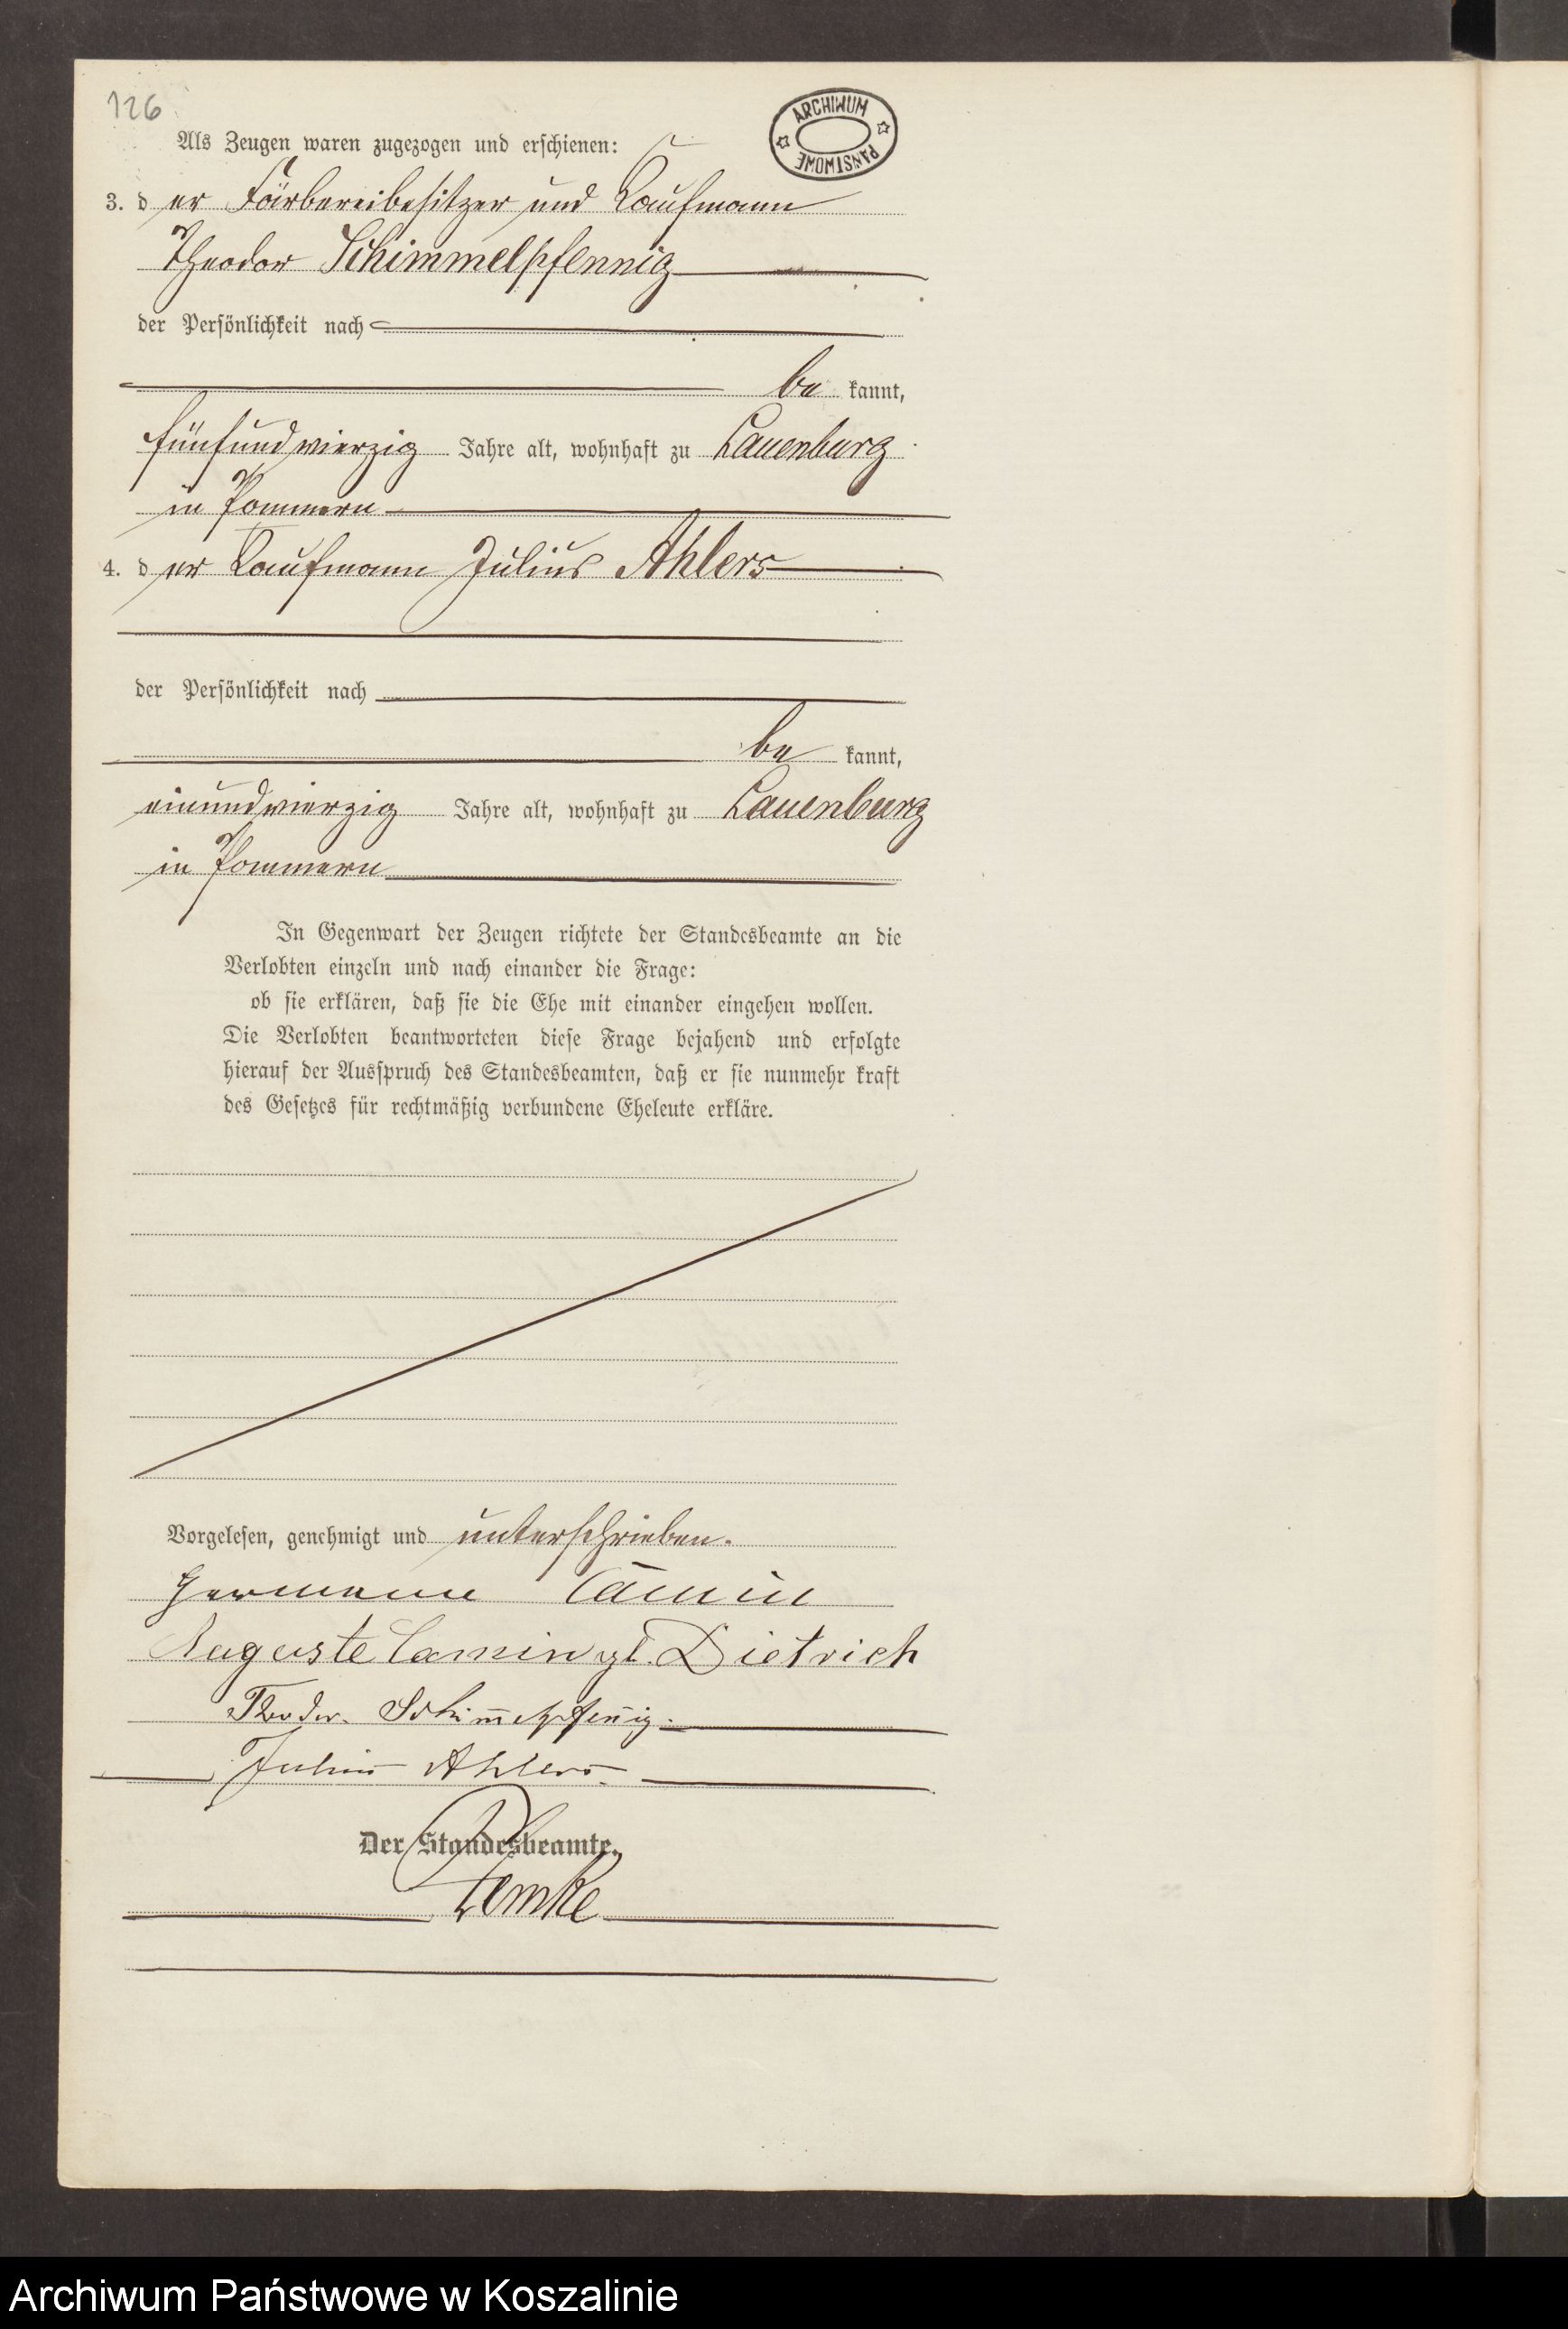 126
ARCHIWUM PAŃSTWOWE
Als Zeugen waren zugezogen und erschienen:
3. der Färbereibesitzer und Kaufmann
Theodor Schimmelpfennig
der Persönlichkeit nach
be kannt,
fünfundvierzig Jahre alt, wohnhaft zu Lauenburg
in Pommern
4. der Kaufmann Julius Ahlers
der Persönlichkeit nach
be kannt,
einundvierzig Jahre alt, wohnhaft zu Lauenburg
in Pommern
In Gegenwart der Zeugen richtete der Standesbeamte an die
Verlobten einzeln und nach einander die Frage:
ob sie erklären, daß sie die Ehe mit einander eingehen wollen.
Die Verlobten beantworteten diese Frage bejahend und erfolgte
hierauf der Ausspruch des Standesbeamten, daß er sie nunmehr kraft
des Gesetzes für rechtmäßig verbundene Eheleute erkläre.
Vorgelesen, genehmigt und unterschrieben.
Hermann Camin
Auguste Camin gb. Dietrich
Theodor Schim̅elpfen̅ig.
Julius Ahlers.
Der Standesbeamte.
Archiwum Państwowe w Koszalinie